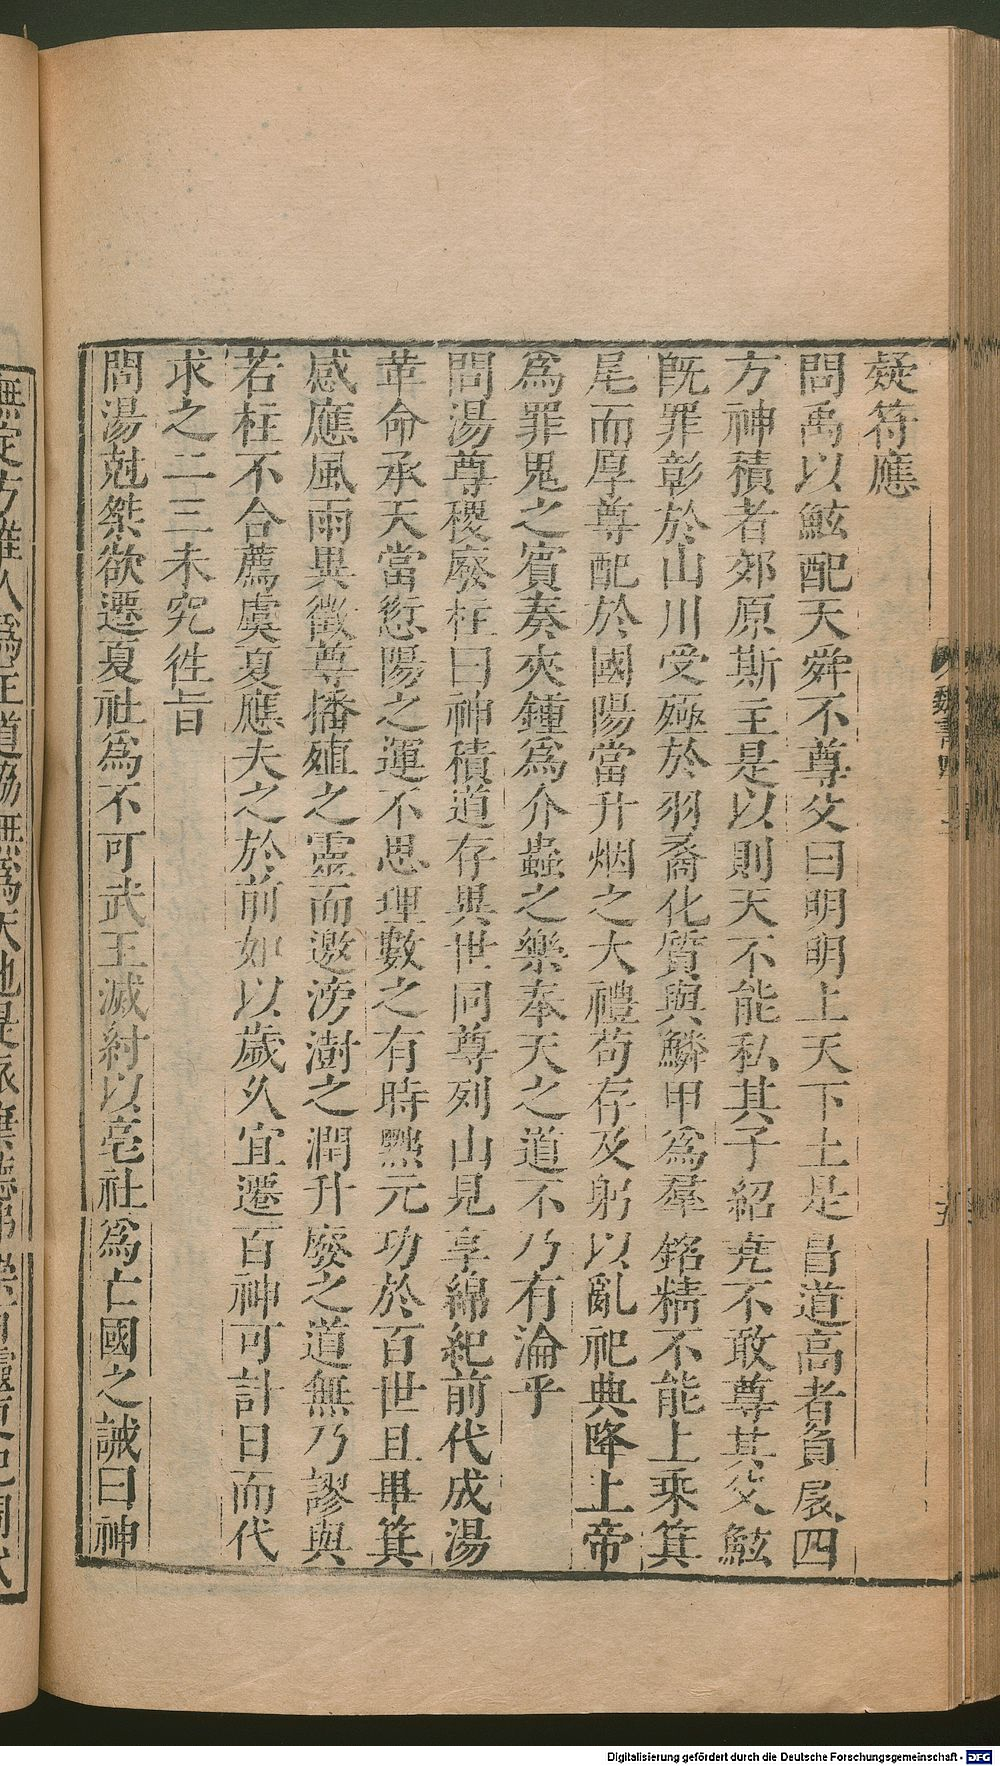 疑符應
問禹以鮌配天舜不尊父曰明明上天下土是昌道高者負扆四
方神積者郊原斯主是以則天不能私其子紹堯不敢尊其父鮌
既罪彰於山川受殛於羽裔化質與鱗甲爲羣銘精不能上乘箕
尾而厚尊配於國陽當升烟之大禮苟存及躬以亂祀典降上帝
爲罪鬼之賓奏夾鍾爲介蟲之樂奉天之道不乃有淪乎
問湯尊稷廢柱曰神積道存異世同尊列山見享綿紀前代成湯
革命承天當愆陽之運不思理數之有時黜元功於百世且畢箕
感應風雨異徵尊播殖之靈而邀滂澍之潤升廢之道無乃謬與
若柱不合薦虞夏應夫之於前如以歲久宜遷百神可計日而代
求之二三未究徃旨
問湯尅桀欲遷夏社爲不可武王滅紂以亳社爲亡國之誡曰神
魏書
Digitalisierung gefördert durch die Deutsche Forschungsgemeinschaft - DFG